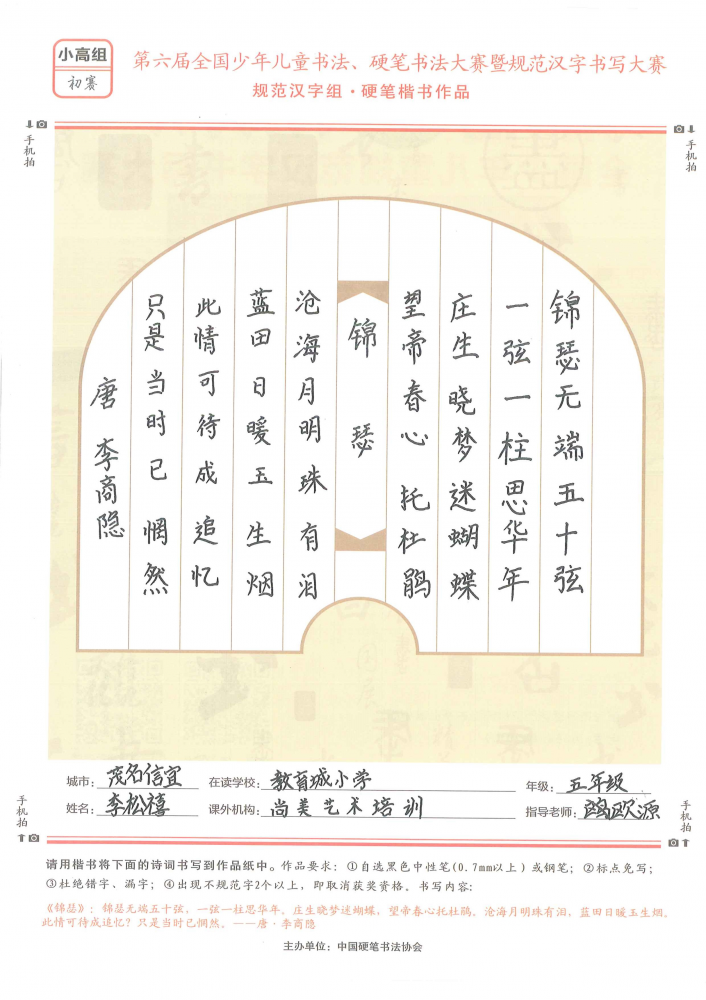 小高组
初赛
第六届全国少年儿童书法、硬笔书法大赛暨规范汉字书写大赛
规范汉字组·硬笔楷书作品
手机拍
手机拍
锦瑟无端五十弦
一弦一柱思华年
庄生晓梦迷蝴蝶
望帝春心托杜鹃
锦瑟
沧海月明珠有泪
蓝田日暖玉生烟
此情可待成追忆
只是当时已惘然
唐 李商隐
城市：茂名信宜 在读学校：教育城小学 年级：五年级
姓名：李松禧 课外机构：尚美艺术培训 指导老师：
手机拍
手机拍
请用楷书将下面的诗词书写到作品纸中。作品要求：①自选黑色中性笔(0.7mm以上)或钢笔；②标点免写；
③杜绝错字、漏字；④出现不规范字2个以上，即取消获奖资格。书写内容：
《锦瑟》：锦瑟无端五十弦，一弦一柱思华年。庄生晓梦迷蝴蝶，望帝春心托杜鹃。沧海月明珠有泪，蓝田日暖玉生烟。
此情可待成追忆？只是当时已惘然。——唐·李商隐
主办单位：中国硬笔书法协会